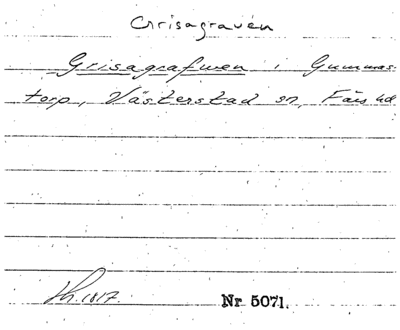 Grisagraven
Grisagrafwen i Gummas-
torp, Västerstad sn, Färs hd
1817. Nr 5071.